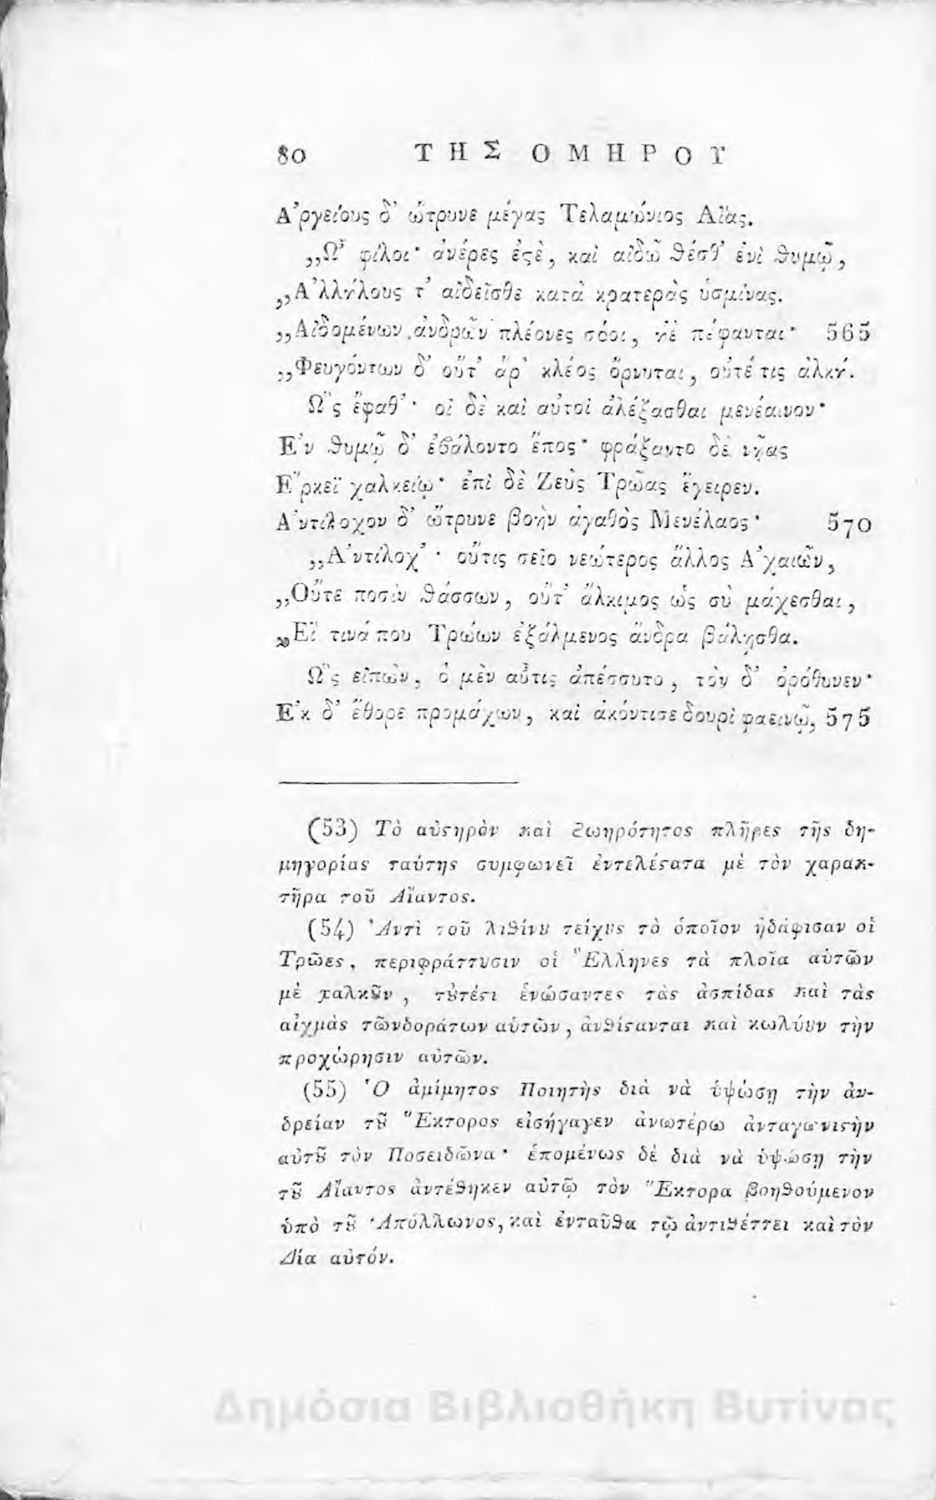 80 ΤΗΣ ΟΜΗΡΟΥ
Ἀργείους δ' ὤτρυνε μέγας Τελαμώνιος Αἴας.
„Ὦ φίλοι· ἀνέρες ἐϛὲ, καὶ αἰδῶ θέσθ' ἐνὶ θυμῷ,
„Ἀλλήλους τ' αἰδεῖσθε κατὰ κρατερὰς ὑσμίνας.
„Αἰδομένων ἀνδρῶν πλέονες σόοι, ἠὲ πέφανται· 565
„Φευγόντων δ' οὔτ' ἄρ' κλέος ὄρνυται, οὐτέ τις ἀλκή.
Ὣς ἔφαθ'· οἱ δὲ καὶ αὐτοὶ ἀλέξασθαι μενέαινον·
Ἐν θυμῷ δ' ἐβάλοντο ἔπος· φράξαντο δὲ νῆας
Ἕρκεϊ χαλκείῳ· ἐπὶ δὲ Ζεὺς Τρῶας ἔγειρεν.
Ἀντίλοχον δ' ὤτρυνε βοὴν ἀγαθὸς Μενέλαος· 570
„Ἀντίλοχ'· οὔτις σεῖο νεώτερος ἄλλος Ἀχαιῶν,
„Οὔτε ποσὶν θάσσων, οὔτ' ἄλκιμος ὡς σὺ μάχεσθαι,
„Εἴ τινά που Τρώων ἐξάλμενος ἄνδρα βάλῃσθα.
Ὣς εἰπὼν, ὁ μὲν αὖτις ἀπέσσυτο, τὸν δ' ὀρόθυνεν·
Ἐκ δ' ἔθορε προμάχων, καὶ ἀκόντισε δουρὶ φαεινῷ, 575
(53) Τὸ αὐϛηρὸν καὶ ζωηρότητος πλῆρες τῆς δη-
μηγορίας ταύτης συμφωνεῖ ἐντελέϛατα μὲ τὸν χαρακ-
τῆρα τοῦ Αἴαντος.
(54) Ἀντὶ τοῦ λιθίνȣ τείχȣς τὸ ὁποῖον ἠδάφισαν οἱ
Τρῶες, περιφράττȣσιν οἱ Ἕλληνες τὰ πλοῖα αὐτῶν
μὲ χαλκȣ͂ν, τȣτέϛι ἑνώσαντες τὰς ἀσπίδας καὶ τὰς
αἰχμὰς τῶνδοράτων αὑτῶν, ἀνθίϛανται καὶ κωλύȣν τὴν
προχώρησιν αὐτῶν.
(55) Ὁ ἀμίμητος Ποιητὴς διὰ νὰ ὑψώσῃ τὴν ἀν-
δρείαν τȣ͂ Ἕκτορος εἰσήγαγεν ἀνωτέρω ἀνταγωνιϛὴν
αὐτȣ͂ τὸν Ποσειδῶνα· ἑπομένως δὲ διὰ νὰ ὑψώσῃ τὴν
τȣ͂ Αἴαντος ἀντέθηκεν αὐτῷ τὸν Ἕκτορα βοηθούμενον
ὑπὸ τȣ͂ Ἀπόλλωνος, καὶ ἐνταῦθα τῷ ἀντιθέττει καὶ τὸν
Δία αὐτόν.
Δημόσια Βιβλιοθήκη Βυτίνας